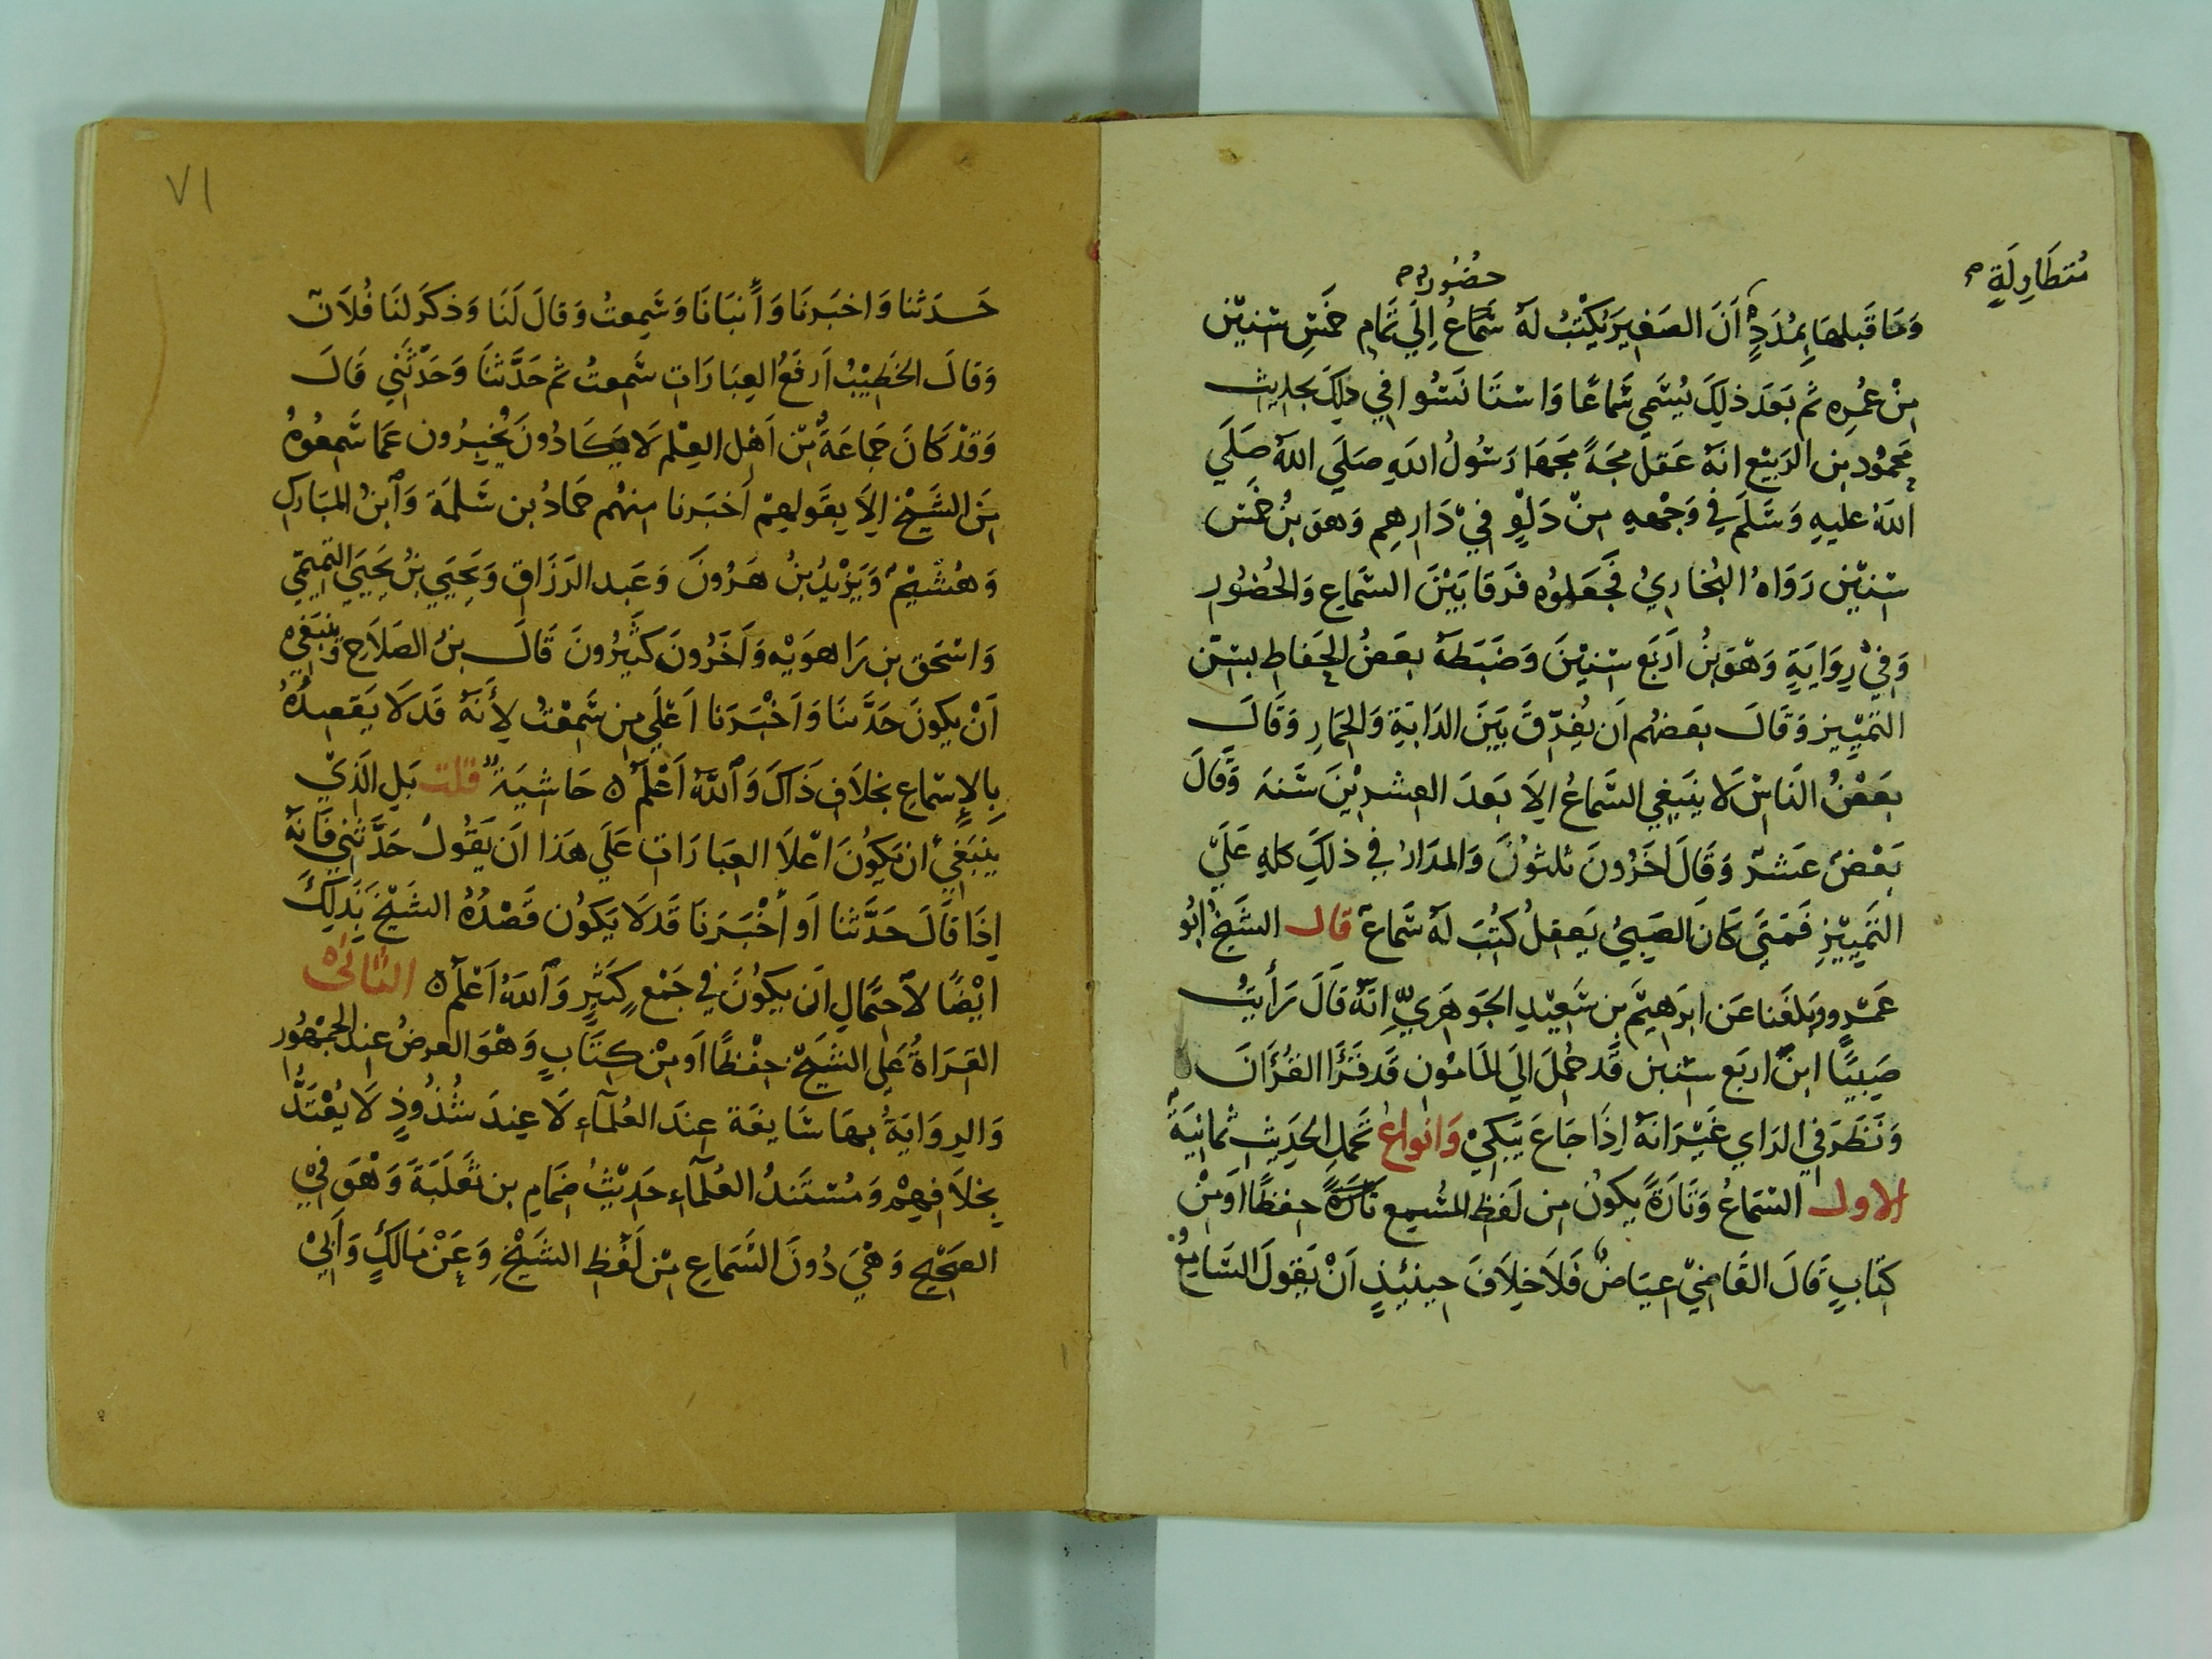 متطاولة صح
حضور صح
وما قبلها بمدد ان الصغير يكتب له سماع الي تمام خمس سنين
من عمره ثم بعد ذلك يسمي سماعا واستانسوا في ذلك بحديث
محمود بن الربيع انه عقل مجة مجها رسول الله صلي الله صلي
الله عليه وسلم في وجهه من دلو في دارهم وهو بن خمس
سنين رواه البخاري فجعلوه فرقا بين السماع والحضور
وفي رواية وهو بن اربع سنين وضبطه بعض الحفاط بسن
التمييز وقال بعضهم ان يفرق بين الدابة والحمار وقال
بعض الناس لا ينبغي السماع الا بعد العشرين سنه وقال
بعض عشر وقال اخرون ثلثون والمدار في ذلك كله علي
التمييز فمتي كان الصبي يعقل كتب له سماع قال الشيخ ابو
عمرو وبلغنا عن ابرهيم بن سعيد الجوهري انه قال رأيت
صبيا ابن اربع سنين قد حمل الي المامون قد قرا القران
ونظر في الراي غير انه اذا جاع يبكي وانواع تحمل الحديث ثمانية
الاول السماع وتارة يكون من لفظ المسمع تارة حفظا اومن
كتاب قال القاضي عياض فلا خلاف حينئذ ان يقول السامع
٧١
حدثنا واخبرنا وأنبانا وسمعت وقال لنا وذكر لنا فلان
وقال الخطيب ارفع العبارات سمعت ثم حدثنا وحدثني قال
وقد كان جماعة من اهل العلم لا يكادون يخبرون عما سمعوه
من الشيخ الا بقولهم اخبرنا منهم حماد بن سلمة وابن المبارك
وهشيم ويزيد بن هرون وعبد الرزاق ويحيي بن يحيي التميمي
واسحق بن راهويه واخرون كثيرون قال بن الصلاح وينبغي
ان يكون حدثنا واخبرنا اعلي من سمعت لأنه قد لا يقصده
بالإسماع بخلاف ذاك والله اعلم ه حاشية قلت بل الذي
ينبغي ان يكون اعلا العبارات علي هذا ان يقول حدثني فانه
اذا قال حدثنا او أخبرنا قد لا يكون قصده الشيخ بذلك
ايضا لاحتمال ان يكون في جمع كثير والله اعلم ه الثاني
القراة علي الشيخ حفظا او من كتاب وهو العرض عند الجمهور
والرواية بها سايغة عند العلمآء لا عند شذوذ لا يعتد
بخلافهم ومستند العلمآء حديث ضمام بن ثعلبة وهو في
الصحيح وهي دون السماع من لفظ الشيخ وعن مالك وابي